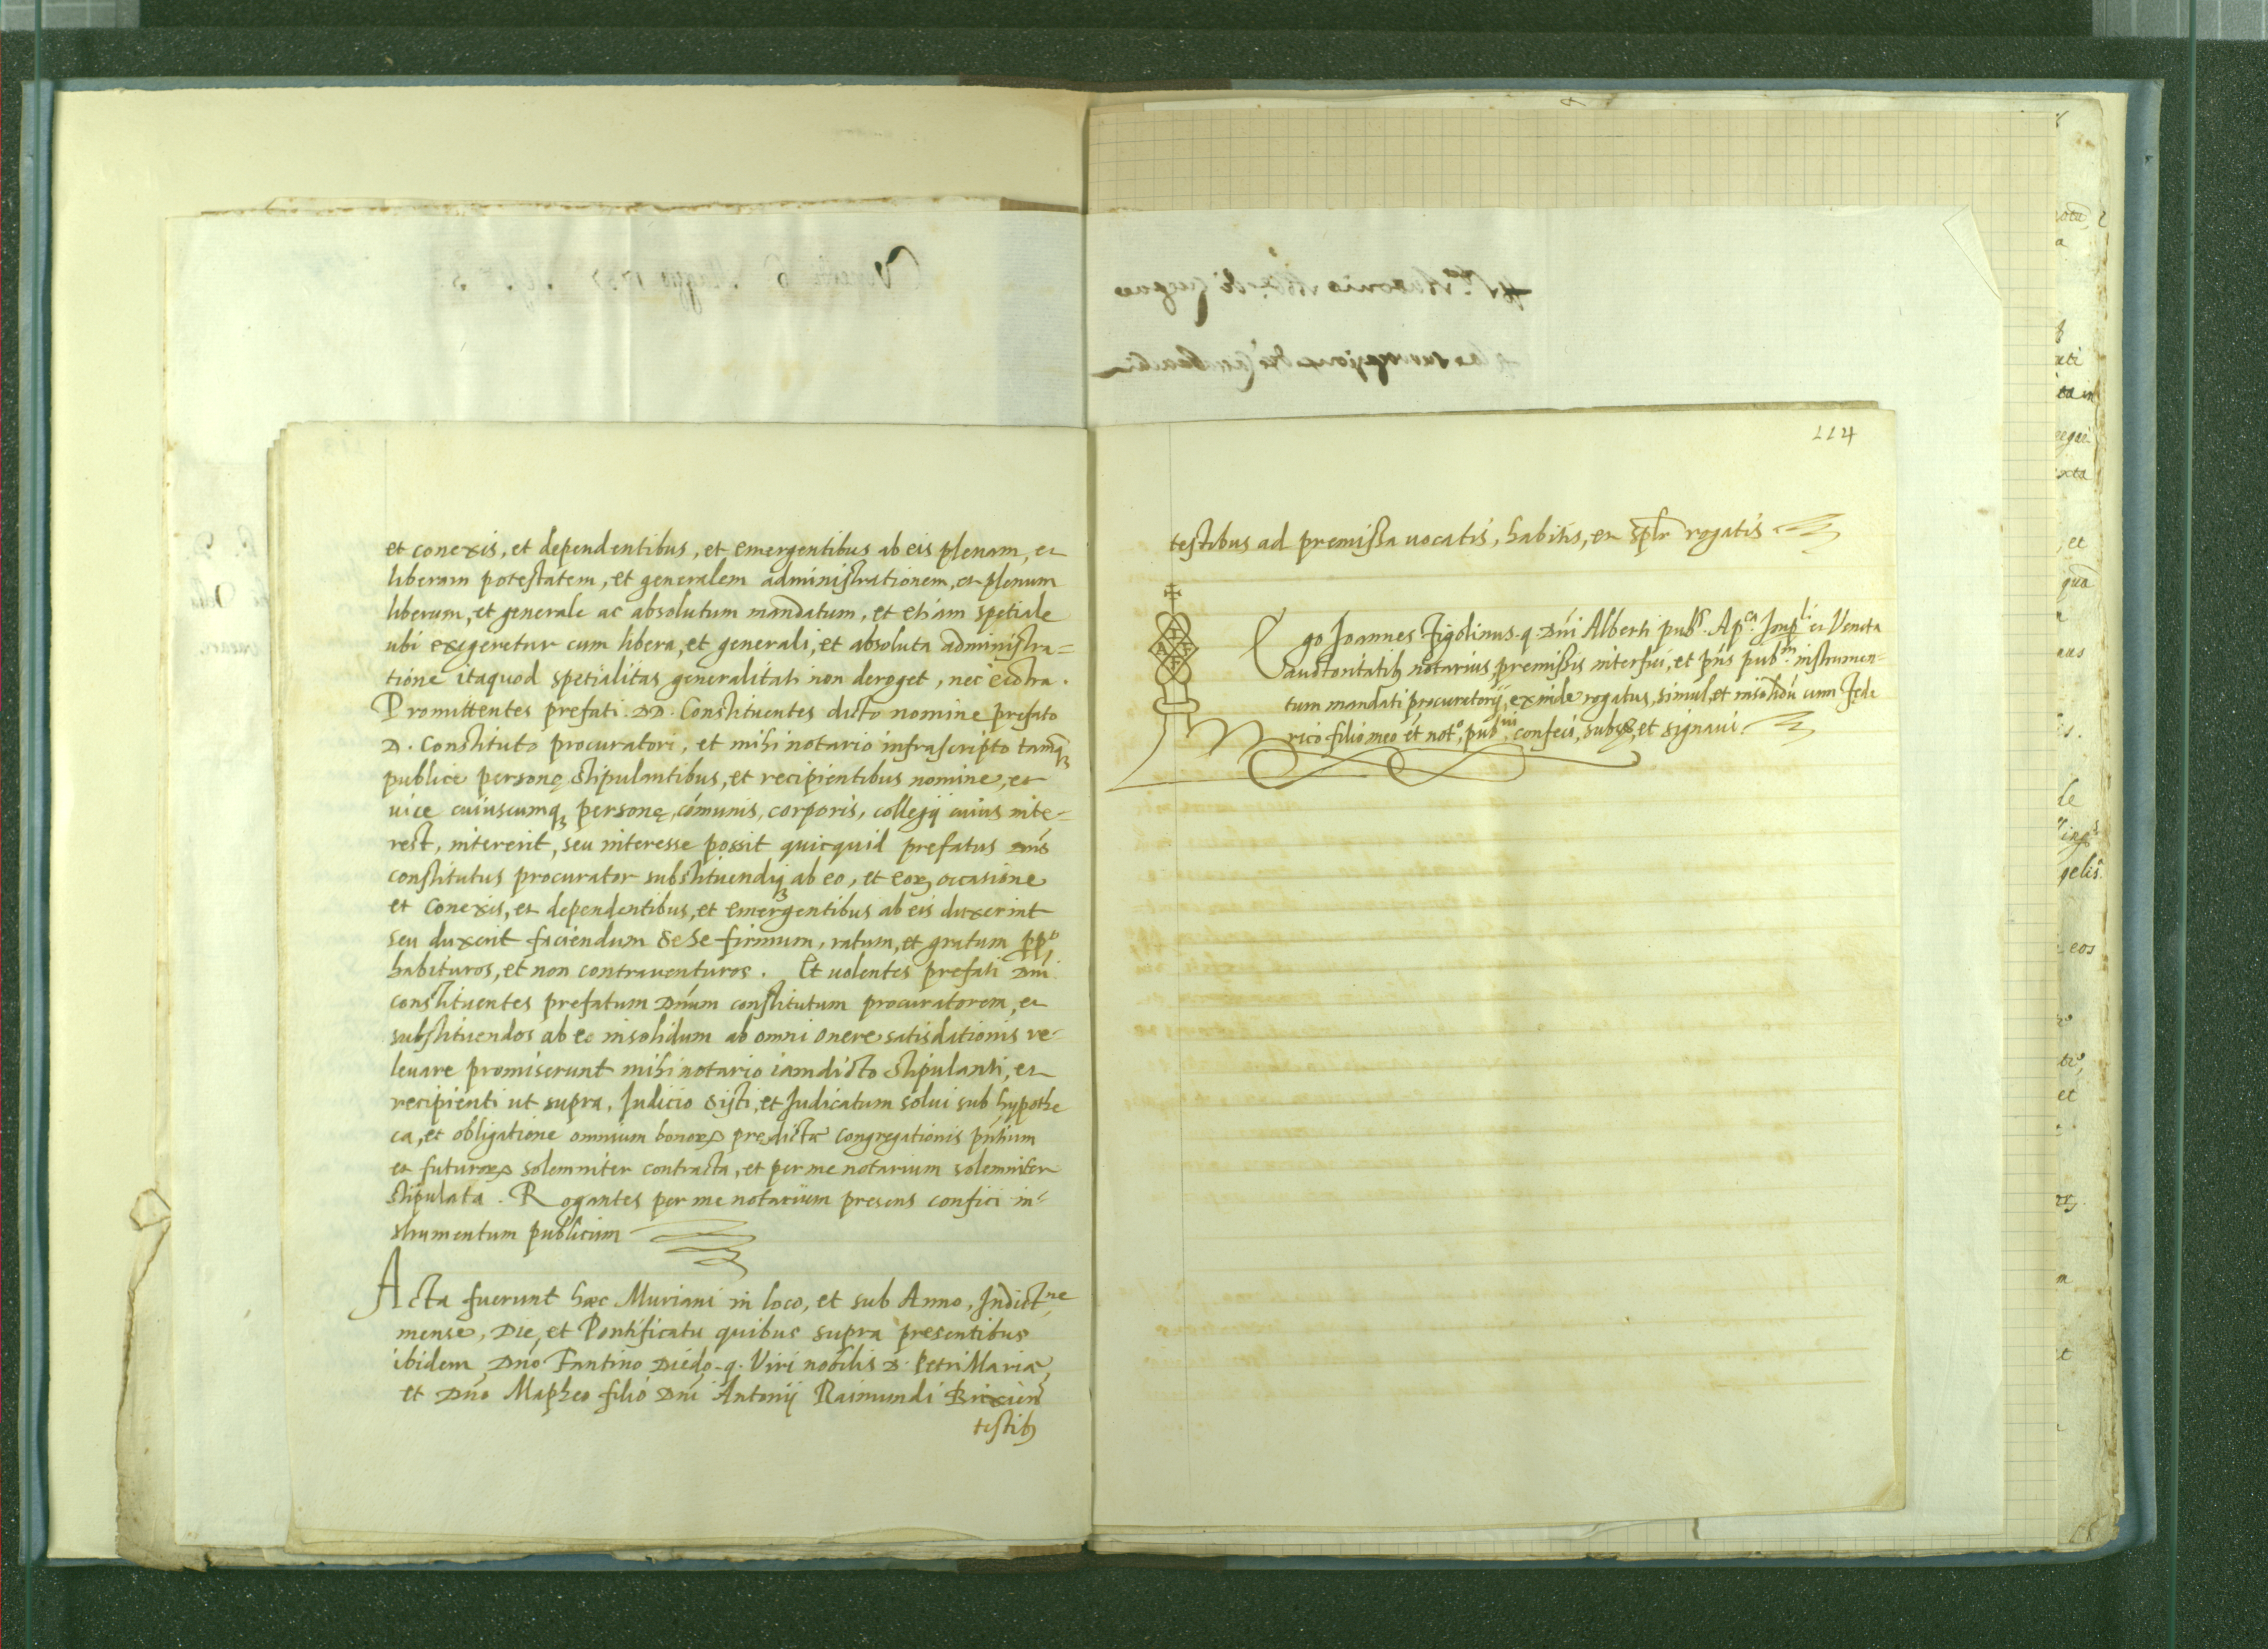 et conexis, et dependentibus, et emergentibus ab eis plenam, et
liberam potestatem, et generalem administrationem, et plenum
liberum, et generale ac absolutum mandatum, et etiam spetiale
ubi exegeretur cum libera, et generali, et absoluta administra=
tione itaquod spetialitas generalitati non deroget, nec ecōtra.
Promittentes prefati DD. Constituentes dicto nomine prefato
D. Constituto procuratori, et mihi notario infrascripto tamq̄
publice personę stipulantibus, et recipientibus nomine, et
uice cuiuscumq; personę, cōmunis, corporis, collegij cuius inte=
rest, intererit, seu interesse possit quicquid prefatus Dn̄s
constitutus procurator substituendiq; ab eo, et eoꝝ occasione
et conexis, et dependentibus, et emergentibus ab eis duxerint
seu duxerit faciendum de se firmum, ratum, et gratum ppº
habituros, et non contrauenturos. Et uolentes prefati Dn̄i
constituentes prefatum Dn̄um constitutum procuratorem, et
substituendos ab eo insolidum ab omni onere satisdationis re-
leuare promiserunt mihi notario iamdicto stipulanti, et
recipienti ut supra, Iudicio sisti, et Iudicatum solui sub hypothe
ca, et obligatione omnium bonoꝝ predictæ congregationis pn̄tium
et futuroꝝ solemniter contracta, et per me notarium solemniter
stipulata. Rogantes per me notarium presens confici in-
strumentum publicum
Acta fuerunt hæc Muriani in loco, et sub Anno, Indictne
mense, Die, et Pontificatu quibus supra presentibus
ibidem Dn̄o Fantino Diedo q. Viri nobilis D. Petri Mariæ,
et Dn̄o Mapheo filio Dn̄i Antonij Raimundi Brixien̄
testib;
114
testibus ad premissa uocatis, habitis, et sp̄lr rogatis
A
Ego Ioannes Figolinus q. Dn̄i Alberti pubs. Apca. Impli et Veneta
auctoritatib; notarius, premissis interfui, et pn̄s pubm. instrumen-
tum mandati procuratorij, exinde rogatus, simul, et insolidū cum Fede
rico filio meo et notº, confeci, et signaui